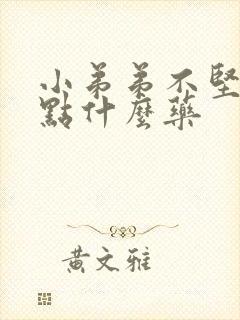 小弟弟不堅
點什麼藥
黃文雅